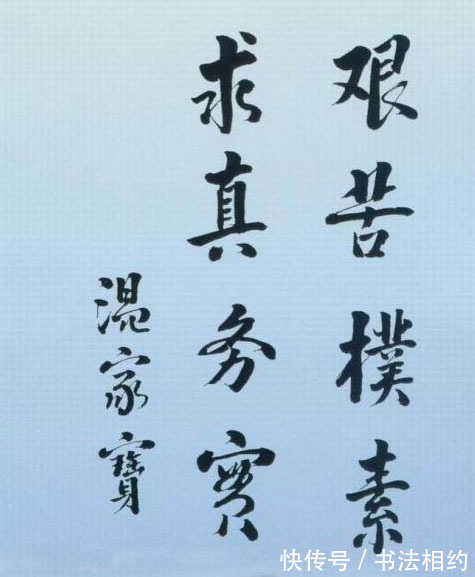 艰苦樸素
求真务實
温家寶
快传号/书法相约